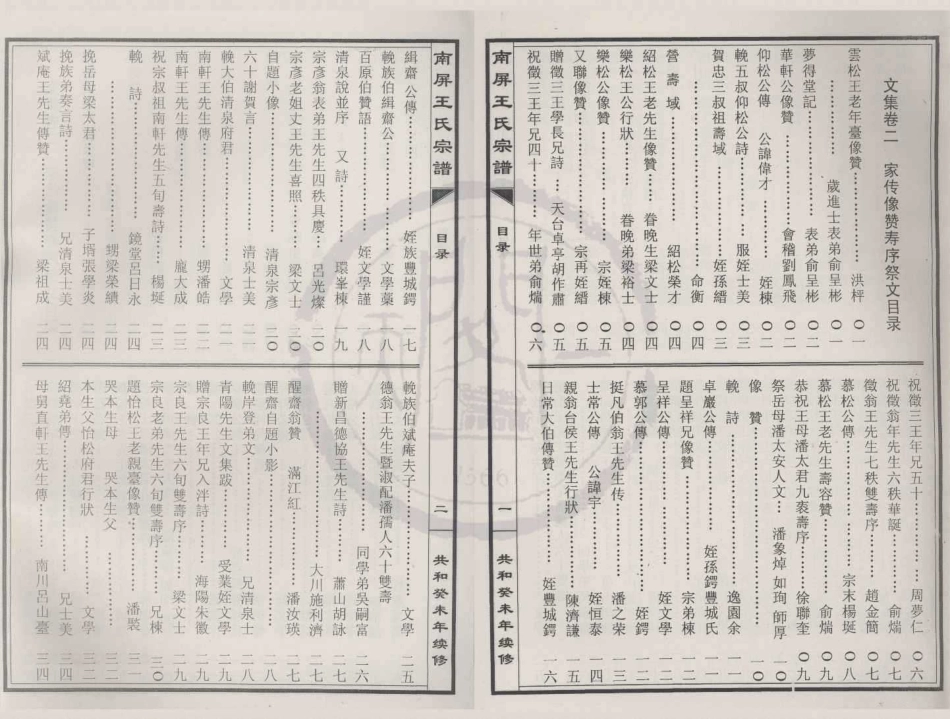 文集卷二　家传像赞寿序祭文目录
雲松王老年臺像贊………………洪枰 〇一
………………歲進士表弟俞呈彬 〇一
夢得堂記………………表弟俞呈彬 〇二
華軒公像贊………………會稽劉鳳飛 〇二
仰松公傳　公諱偉才………………姪棟 〇二
輓五叔仰松公詩………………服姪士美 〇三
賀忠三叔祖壽域………………姪孫縉 〇三
………………命衡 〇四
營壽域………………紹松榮才 〇四
紹松王老先生像贊………………眷晚生梁文士 〇四
樂松王公行狀………………眷晚弟梁裕士 〇四
樂松公像贊………………宗姪棟 〇五
又聯像贊………………宗再姪縉 〇五
贈徵三王學長兄詩………………天台卓亭胡作肅 〇五
祝徵三王年兄四十………………年世弟俞煓 〇六
祝徵三王年兄五十………………周夢仁 〇六
祝徵翁年先生六秩華誕………………俞煓 〇七
徵翁王先生七秩雙壽序………………趙金簡 〇七
慕松公傳………………宗末楊珽 〇八
慕松王老先生壽容贊………………俞煓 〇九
恭祝王母潘太君九袠壽序………………徐聯奎 〇九
祭岳母潘太安人文………………潘象焯 如珣 師厚
像贊………………一〇
輓詩………………逸園余 一一
卓巖公傳………………姪孫鍔豐城氏 一一
題呈祥兄像贊………………宗弟棟 一一
呈祥公傳………………姪文學 一二
慕郭公傳………………姪鍔 一二
挺凡伯翁王先生传………………潘之荣 一三
士常公傳　公諱宇………………姪恒泰 一四
親翁台侯王先生行狀………………陳濟謙 一五
日常大伯傳贊………………姪豐城鍔 一六
南屏王氏宗譜
目录
一
共和癸未年续修
南屏王氏宗譜
目录
二
共和癸未年续修
緝齋公傳………………姪族豐城鍔 一七
輓族伯緝齋公………………文學藁 一八
百原伯贊語………………姪文學謹 一八
清泉說並序　又詩………………環峯棟 一九
宗彦翁表弟王先生四秩具慶………………呂光燦 二〇
宗彦老姐丈王先生喜照………………梁文士 二〇
自題小像………………清泉宗彦 二〇
六十謝賀言………………清泉士美 二一
輓大伯清泉府君………………文學 二一
南軒王先生傳………………甥潘皓 二二
南軒王先生傳………………龐大成 二三
祝宗叔祖南軒先生五旬壽詩………………楊珽 二三
輓詩………………鏡堂呂日永 二四
………………甥梁榮績 二四
挽岳母梁太君………………子壻張學炎 二四
挽族弟奏言詩………………兄清泉士美 二四
斌庵王先生傳贊………………梁祖成 二四
輓族伯斌庵夫子………………文學 二五
德翁王先生暨淑配潘孺人六十雙壽
………………同學弟吳嗣富 二六
贈新昌德協王先生詩………………蕭山胡詠 二七
………………大川施利濟 二七
醒齋翁贊　滿江紅………………潘汝瑛 二七
醒齋自題小影………………二八
輓岸登弟文………………兄清泉士 二八
青陽先生文集跋………………受業姪文學 二九
贈宗良王年兄入泮詩………………海陽朱徽 二九
宗良王先生六旬雙壽序………………梁文士 二九
宗良老弟先生六旬雙壽序………………兄棟 三〇
題怡松王老親臺像贊………………潘裝 三一
哭本生母　哭本生父………………三二
本生父怡松府君行狀………………文學 三二
紹堯弟傳………………兄士美 三四
母舅直軒王先生傳………………南川呂山臺 三四